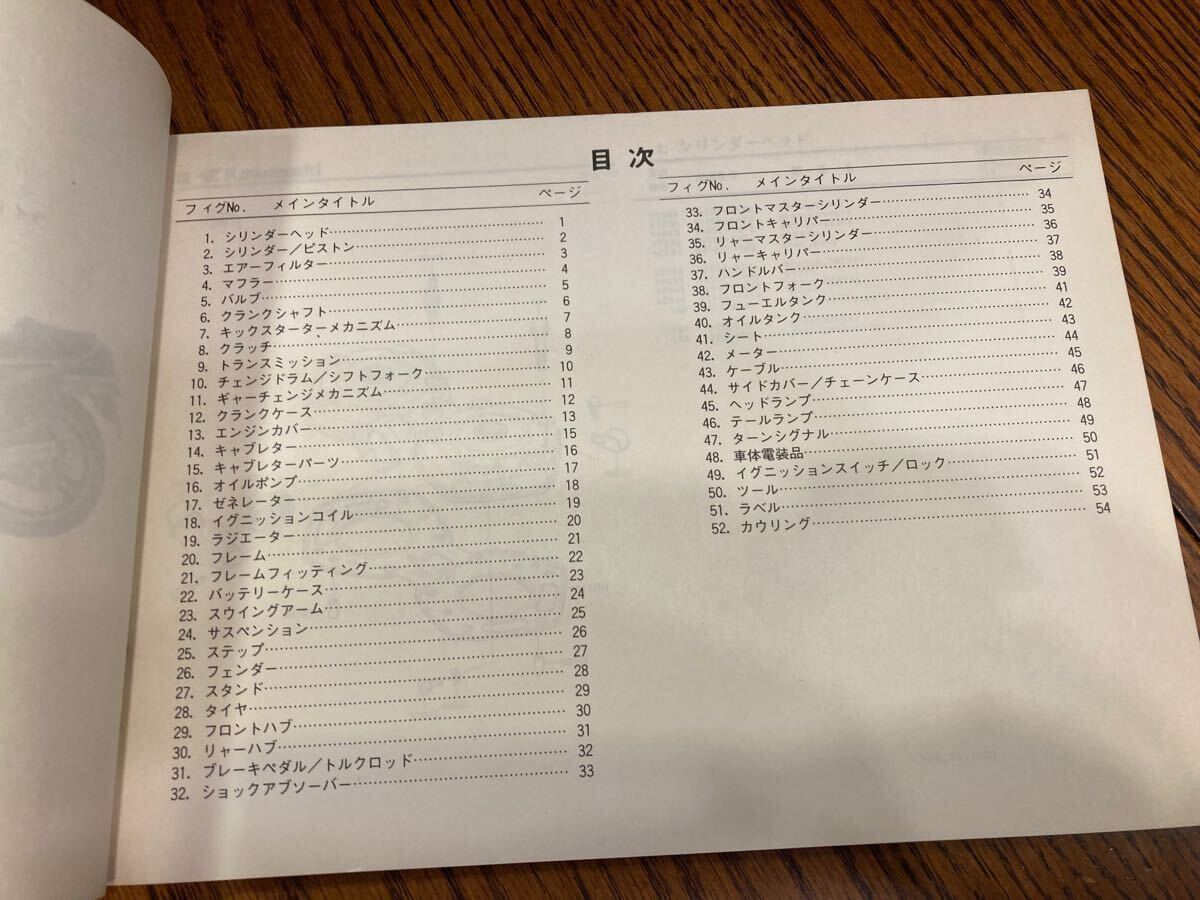 目次
フィグNo. メインタイトル ページ
1. シリンダーヘッド 1
2. シリンダー/ピストン 2
3. エアーフィルター 3
4. マフラー 4
5. バルブ 5
6. クランクシャフト 6
7. キックスターターメカニズム 7
8. クラッチ 8
9. トランスミッション 9
10. チェンジドラム/シフトフォーク 10
11. ギャーチェンジメカニズム 11
12. クランクケース 12
13. エンジンカバー 13
14. キャブレター 15
15. キャブレターパーツ 16
16. オイルポンプ 17
17. ゼネレーター 18
18. イグニッションコイル 19
19. ラジエーター 20
20. フレーム 21
21. フレームフィッティング 22
22. バッテリーケース 23
23. スウイングアーム 24
24. サスペンション 25
25. ステップ 26
26. フェンダー 27
27. スタンド 28
28. タイヤ 29
29. フロントハブ 30
30. リャーハブ 31
31. ブレーキペダル/トルクロッド 32
32. ショックアブソーバー 33
フィグNo. メインタイトル ページ
33. フロントマスターシリンダー 34
34. フロントキャリパー 35
35. リャーマスターシリンダー 36
36. リャーキャリパー 37
37. ハンドルバー 38
38. フロントフォーク 39
39. フューエルタンク 41
40. オイルタンク 42
41. シート 43
42. メーター 44
43. ケーブル 45
44. サイドカバー/チェーンケース 46
45. ヘッドランプ 47
46. テールランプ 48
47. ターンシグナル 49
48. 車体電装品 50
49. イグニッションスイッチ/ロック 51
50. ツール 52
51. ラベル 53
52. カウリング 54